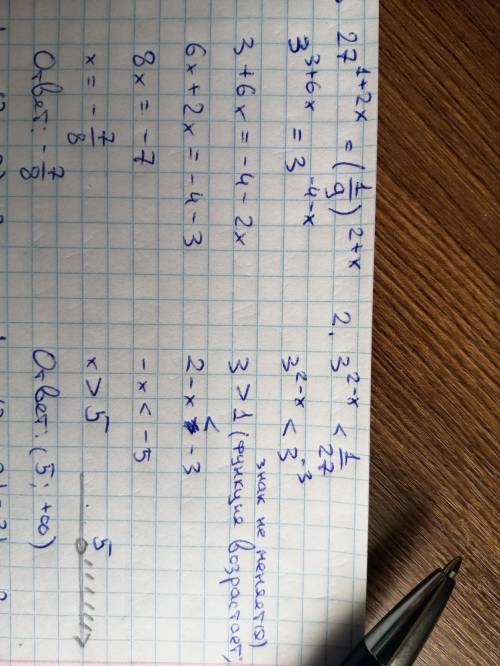 27^{1+2x} = (1/9)^{2+x}
3^{3+6x} = 3^{-4-x}
3+6x = -4-2x
6x+2x = -4-3
8x = -7
x = -7/8
Ответ: -7/8
2. 3^{2-x} < 1/27
3^{2-x} < 3^{-3}
знак не меняется)
3 > 1 (функция возрастает,
2-x < -3
-x < -5
x > 5
5
Ответ: (5; +∞)